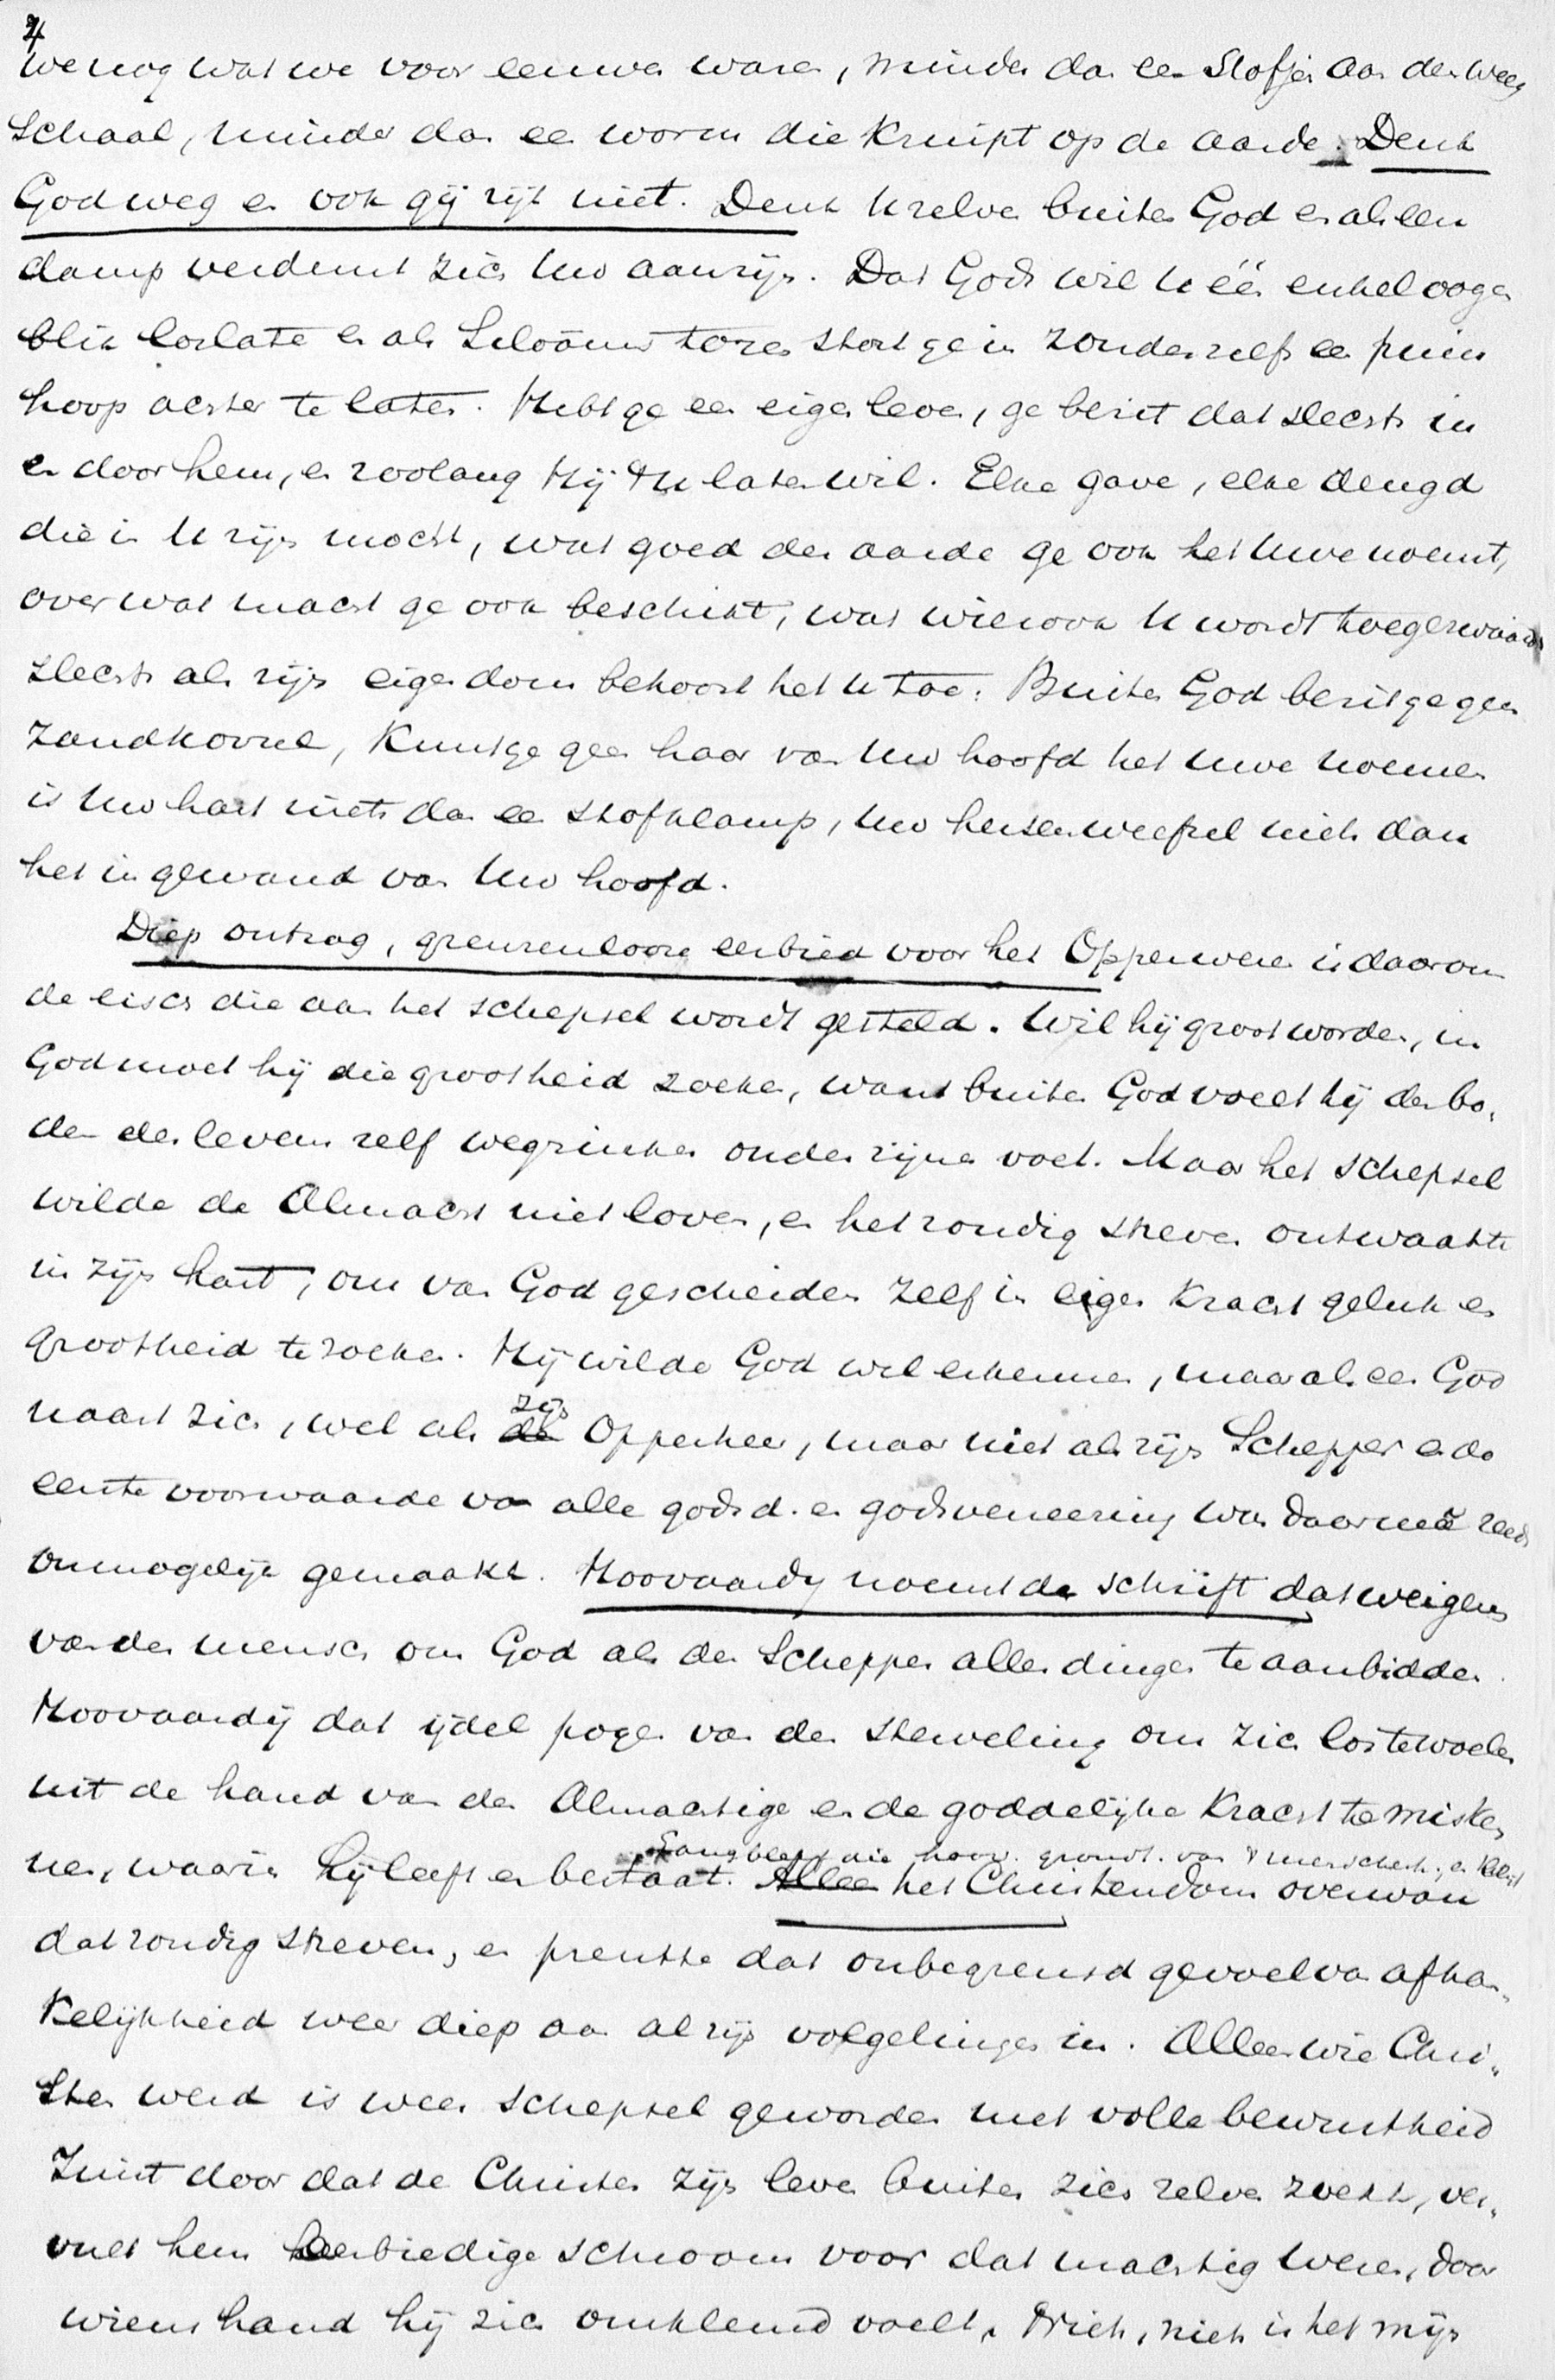 4
we nog wat we voor eeuwen waren, minder dan een Stofje aan den weeg
schaal, minder dan een worm die kruipt op de aarde. Denk
God weg en ook gij zijt niet. Denk U zelven buiten God en als een
damp verdunt zich Uw aanzijn. Dat Gods wil U één enkel oogen
blik loslate en als Siloäms toren stort ge in zonder zelfs een puin
hoop achter te laten. Hebt ge een eigen leven, ge bezit dat slechts in
en door hem, en zoolang Hij 't U laten wil. Elke gave, elke deugd
die in U zijn mocht, wat goed der aarde ge ook het Uwe noemt,
over wat macht ge ook beschikt, wat wierook U wordt toegezwaaid
slechts als zijn eigendom behoort het U toe: Buiten God bezit ge geen
zandkorrel, kunt ge geen haar van Uw hoofd het Uwe noemen
is Uw hart niets dan een stofklomp, Uw hersenweefsel niets dan
het ingewand van Uw hoofd.
Diep ontzag, grenzenlooze eerbied voor het Opperwezen is daarom
de eisch die aan het schepsel wordt gesteld. Wil hij groot worden, in
God moet hij die grootheid zoeken, want buiten God voelt hij den bo-
dem des levens zelf wegzinken onder zijne voet. Maar het schepsel
wilde de Almacht niet loven, en het zondig streven ontwaakte
in zijn hart, om van God gescheiden zelf in eigen kracht geluk en
grootheid te zoeken. Hij wilde God wel erkennen, maar als een God
naast zich, wel als zijn Opperheer, maar niet als zijn Schepper en de
eerste voorwaarde van alle godsd. en godsvereering was daarmeê reeds
onmogelijk gemaakt. Hoovaardij noemt de schrift dat weigeren
van den mensch om God als den Schepper aller dingen te aanbidden.
Hoovaardij dat ijdel pogen van den sterveling om zich los te woelen
uit de hand van den Almachtige en de goddelijke kracht te misken
nen, waarin hij leeft en bestaat. Allee het Christendom overwon
Lang bleef die hoov. grondt. van 't menschelk. en
dat zondig streven, en prentte dat onbegrensd gevoel van afhan-
kelijkheid weer diep aan al zijn volgelingen in. Alleen wie Chri-
sten werd is weer schepsel geworden met volle bewustheid
Juist door dat de Christen zijn leven buiten zich zelven zoekt, ver-
vult hem eerbiedige schroom voor dat machtig Wezen, door
wiens hand hij zich omklemd voelt. Niets, niets is het mijn